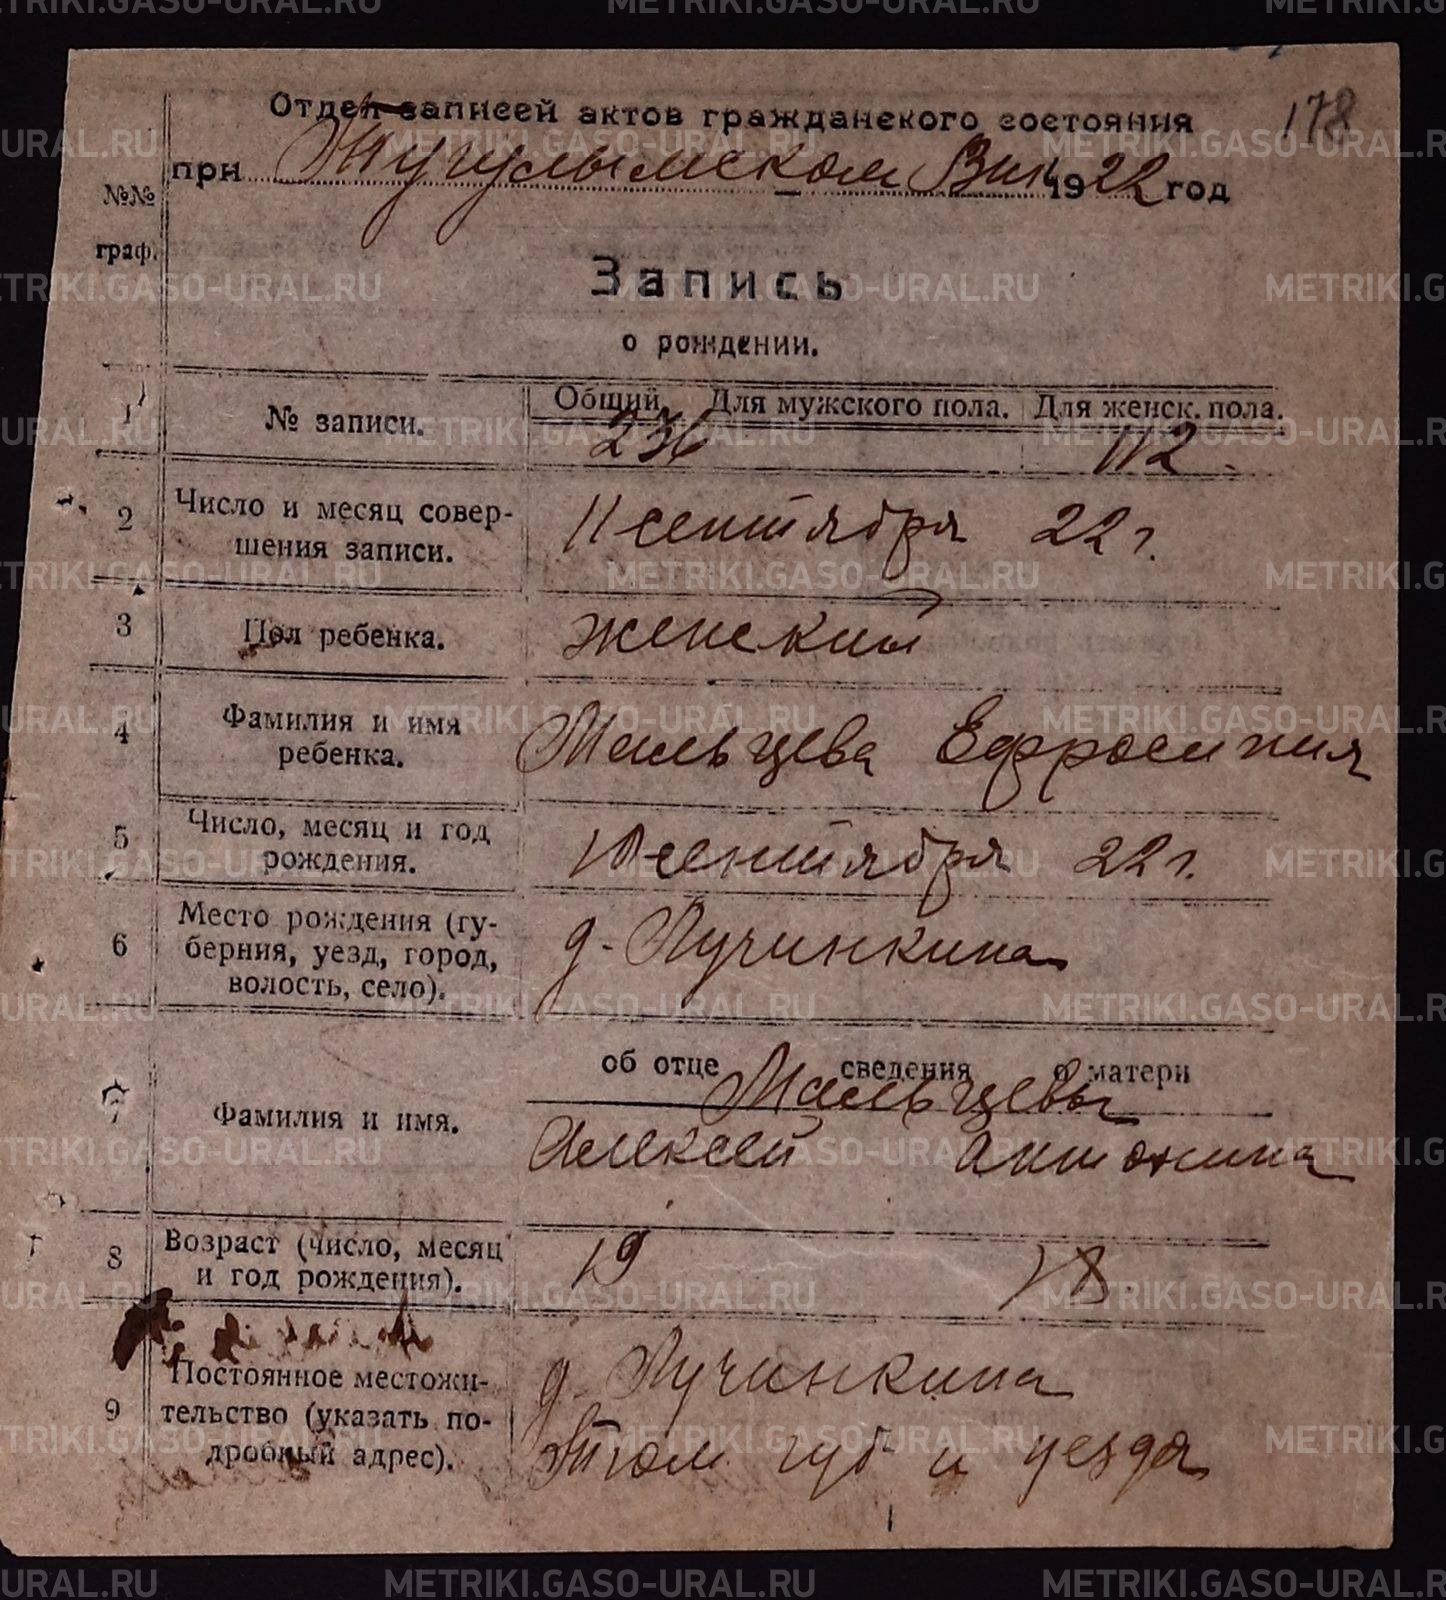 178
Отдел записей актов гражданского состояния
при Тугулымском Вик 1922 год
№№ граф.
Запись
о рождении.
1 № записи. Общий Для мужского пола. Для женск. пола.
236 112
2 Число и месяц совер-
шения записи. 11 сентября 22 г.
3 Пол ребенка. женский
4 Фамилия и имя
ребенка. Мальцева Ефросиния
5 Число, месяц и год
рождения. 10 сентября 22 г.
6 Место рождения (гу-
берния, уезд, город,
волость, село). д. Лучинкина
об отце сведения о матери
Мальцевы
7 Фамилия и имя. Алексей Антонина
8 Возраст (число, месяц
и год рождения). 19 18
9 Постоянное местожи-
тельство (указать по-
дробный адрес). д. Лучинкина
Тюм губ и уезда
METRIKI.GASO-URAL.RU